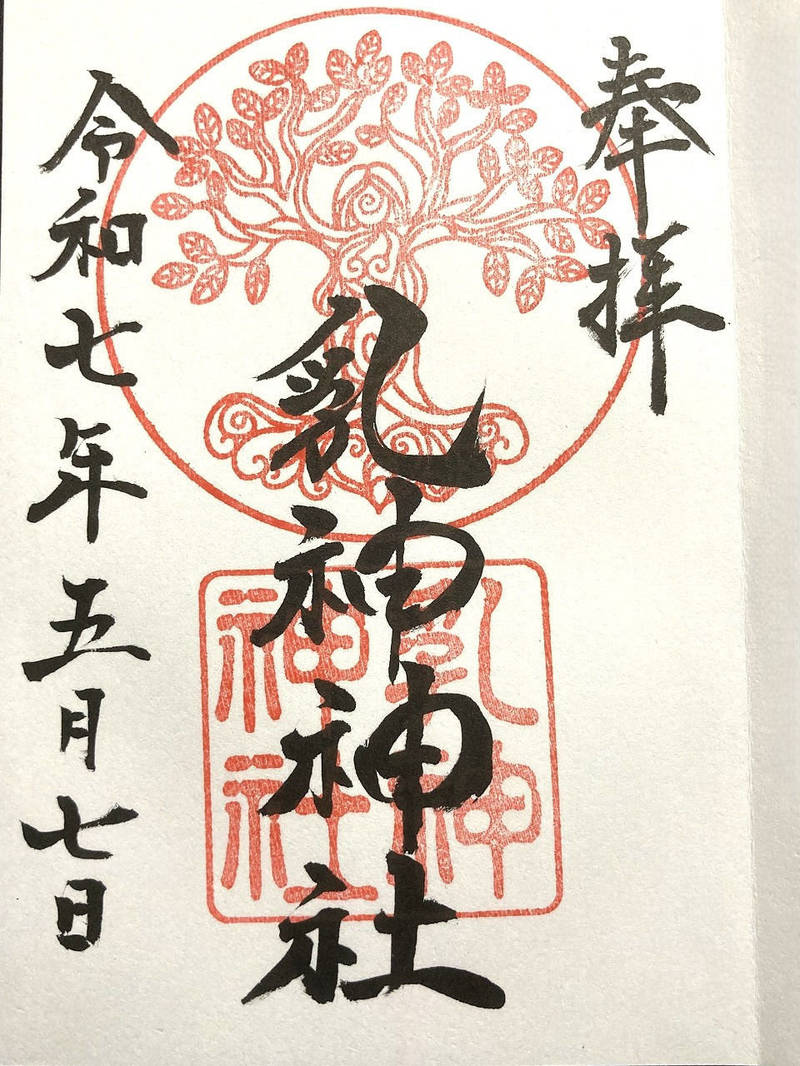 奉拝
乳神神社
乳神
神社
令和七年五月七日